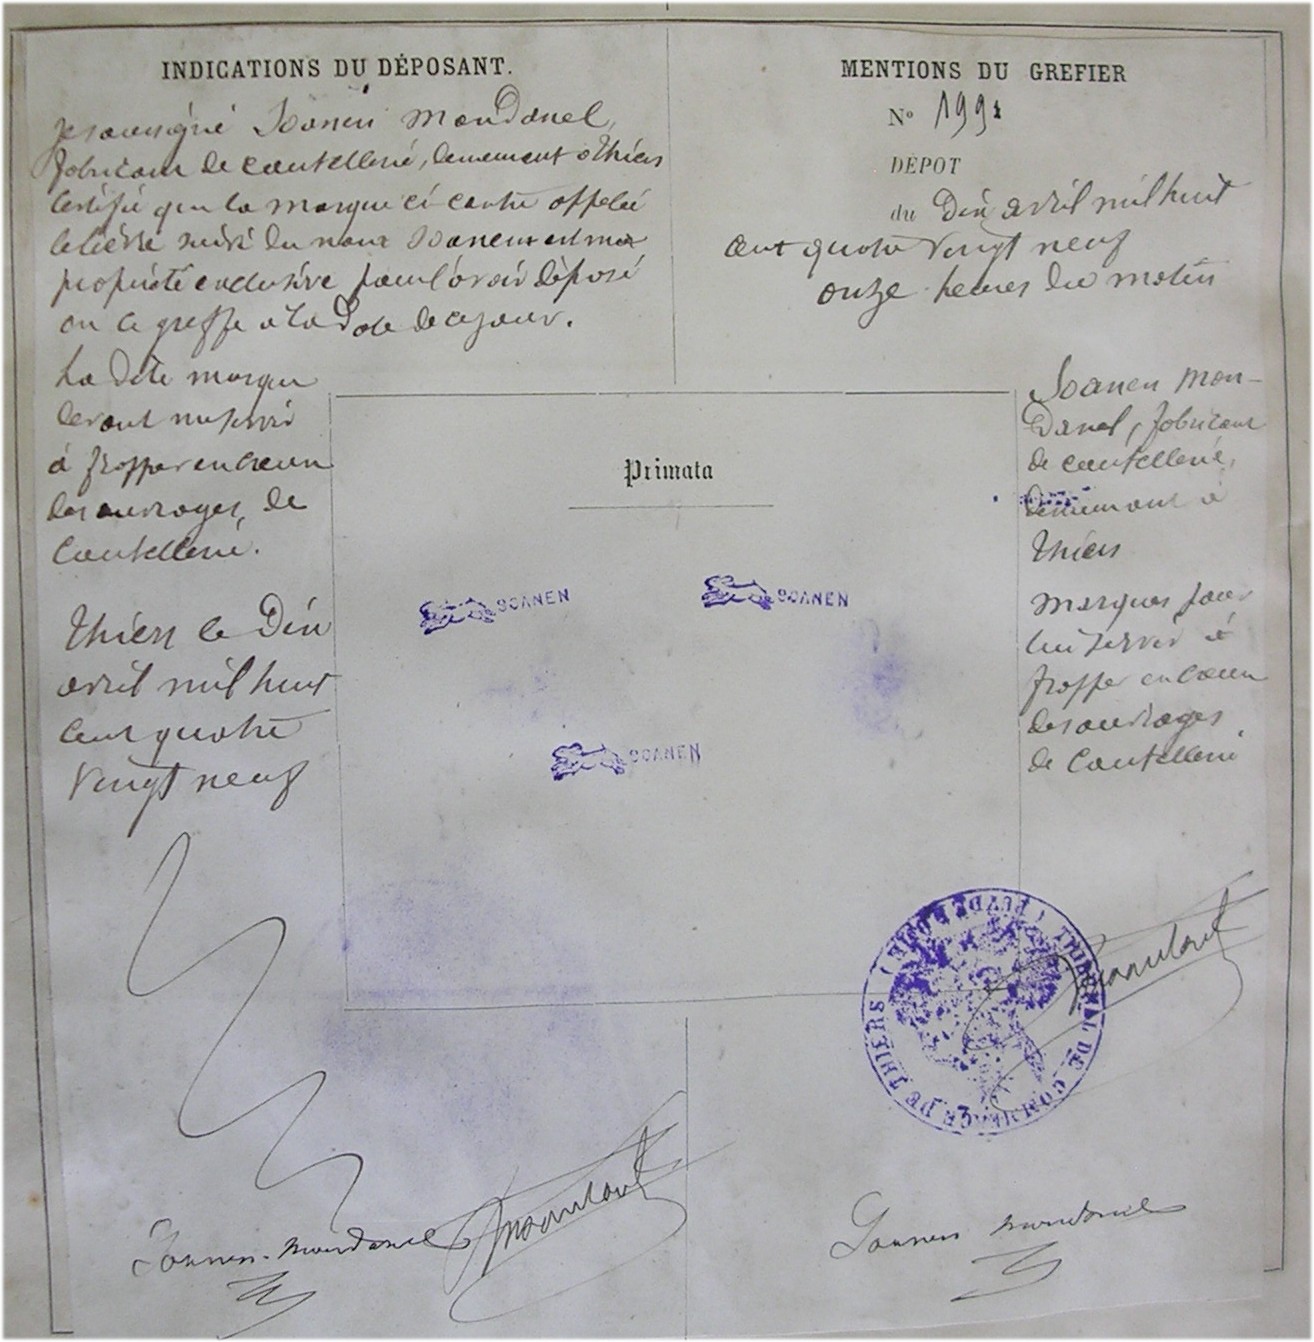 INDICATIONS DU DÉPOSANT.
Je soussigné Soanen Mondanel,
fabricant de coutellerie, demeurant à Thiers
Certifie que la marque ci contre appelée
le lièvre suivi du nom Soanen est ma
propriété exclusive pour l'avoir déposé
au le greffe a la date de ce jour.
La dite marque
devant me servir
à frapper en creux
des ouvrages de
Coutellerie.
Thiers le Dix
avril mil huit
cent quatre
vingt neuf
MENTIONS DU GREFIER
No 1991
DÉPOT
du Dix avril mil huit
cent quatre vingt neuf
onze heures du matin
Soanen Mon-
danel, fabricant
de coutellerie,
demeurant à
Thiers
Marques pour
lui servir à
frapper en creux
des ouvrages
de Coutellerie
Primata
SOANEN
SOANEN
SOANEN
TRIBUNAL DE COMMERCE DE THIERS (PUY DE DOME)
Soanen-Mondanel
Soanen Mondanel